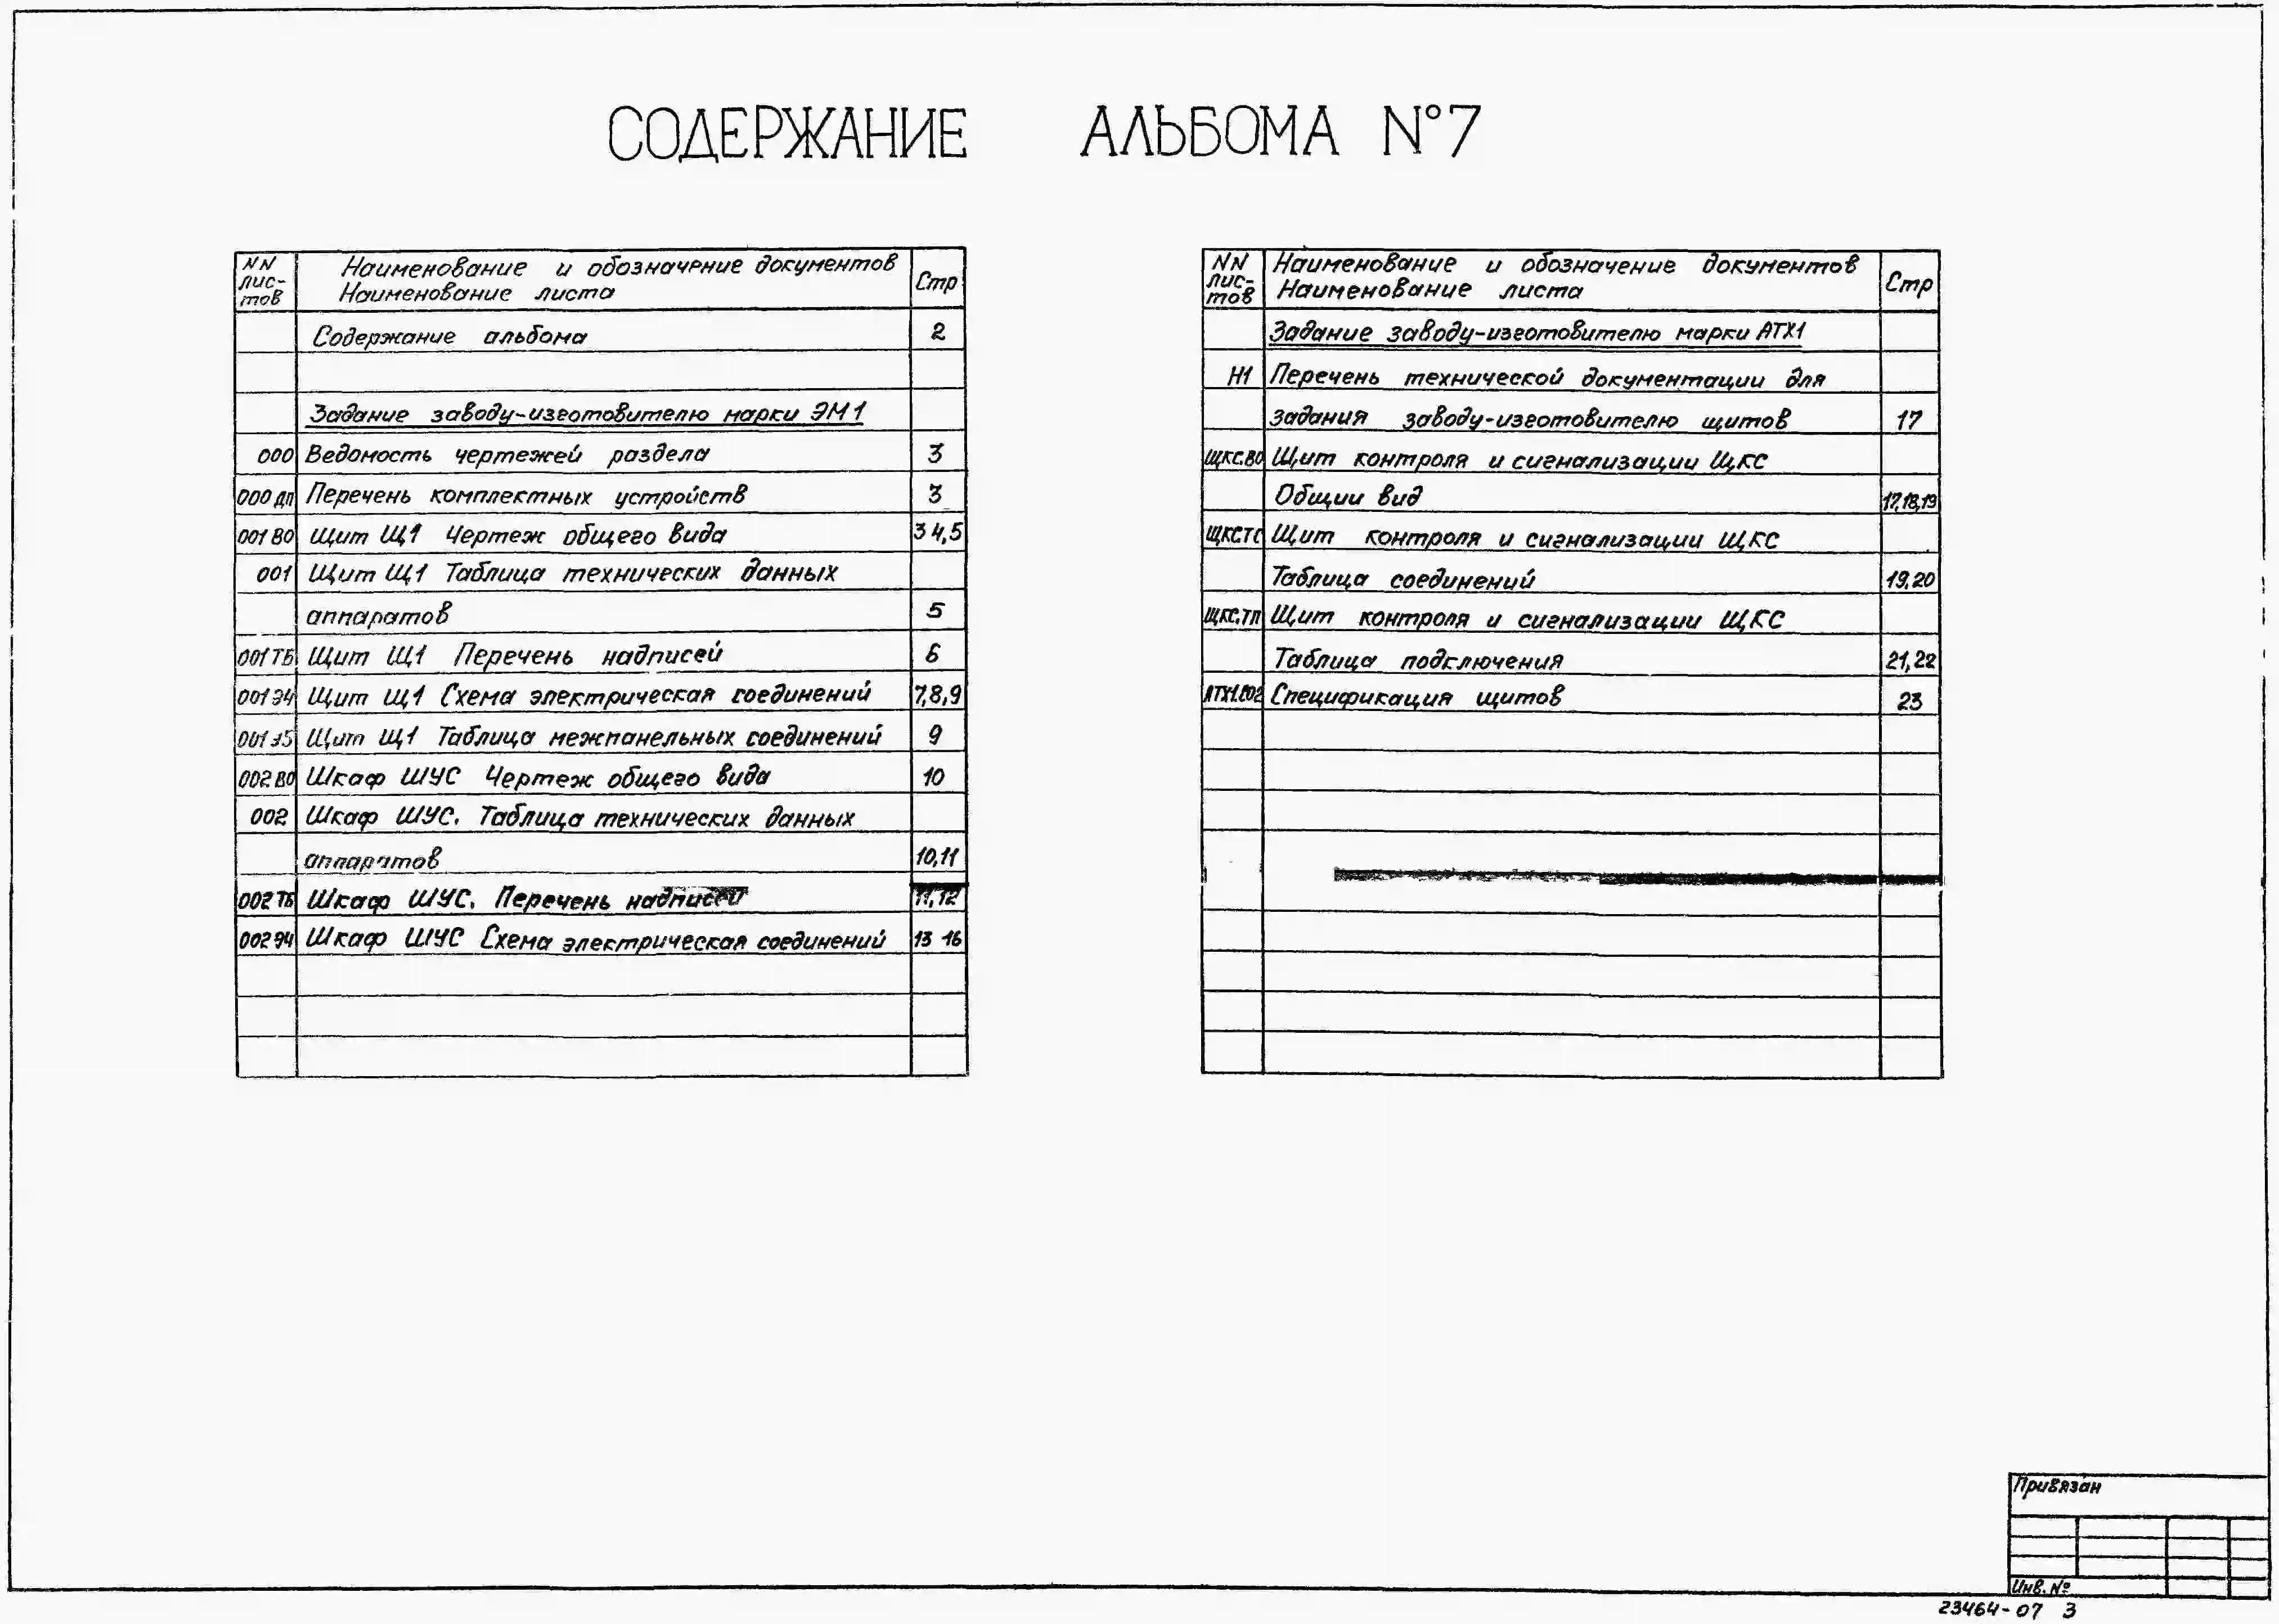 СОДЕРЖАНИЕ АЛЬБОМА N°7
NN листов Наименование и обозначение документов Наименование листа Стр
Содержание альбома 2
Задание заводу-изготовителю марки ЭМ1
000 Ведомость чертежей раздела 3
000 ДП Перечень комплектных устройств 3
001 ВО Щит Щ1 Чертеж общего вида 3 4,5
001 Щит Щ1 Таблица технических данных
аппаратов 5
001 ТБ Щит Щ1 Перечень надписей 6
001 Э4 Щит Щ1 Схема электрическая соединений 7,8,9
001 Э5 Щит Щ1 Таблица межпанельных соединений 9
002 ВО Шкаф ШУС Чертеж общего вида 10
002 Шкаф ШУС. Таблица технических данных
аппаратов 10,11
002 ТБ Шкаф ШУС. Перечень надписей 11,12
002 Э4 Шкаф ШУС Схема электрическая соединений 13 16
NN листов Наименование и обозначение документов Наименование листа Стр
Задание заводу-изготовителю марки АТХ1
Н1 Перечень технической документации для
задания заводу-изготовителю щитов 17
ЩКС.ВО Щит контроля и сигнализации ЩКС
Общии вид 17,18,19
ЩКС.ТС Щит контроля и сигнализации ЩКС
Таблица соединений 19,20
ЩКС.ТП Щит контроля и сигнализации ЩКС
Таблица подключения 21,22
АТХ1.С02 Спецификация щитов 23
Привязан
Инв. №
23464-07 3